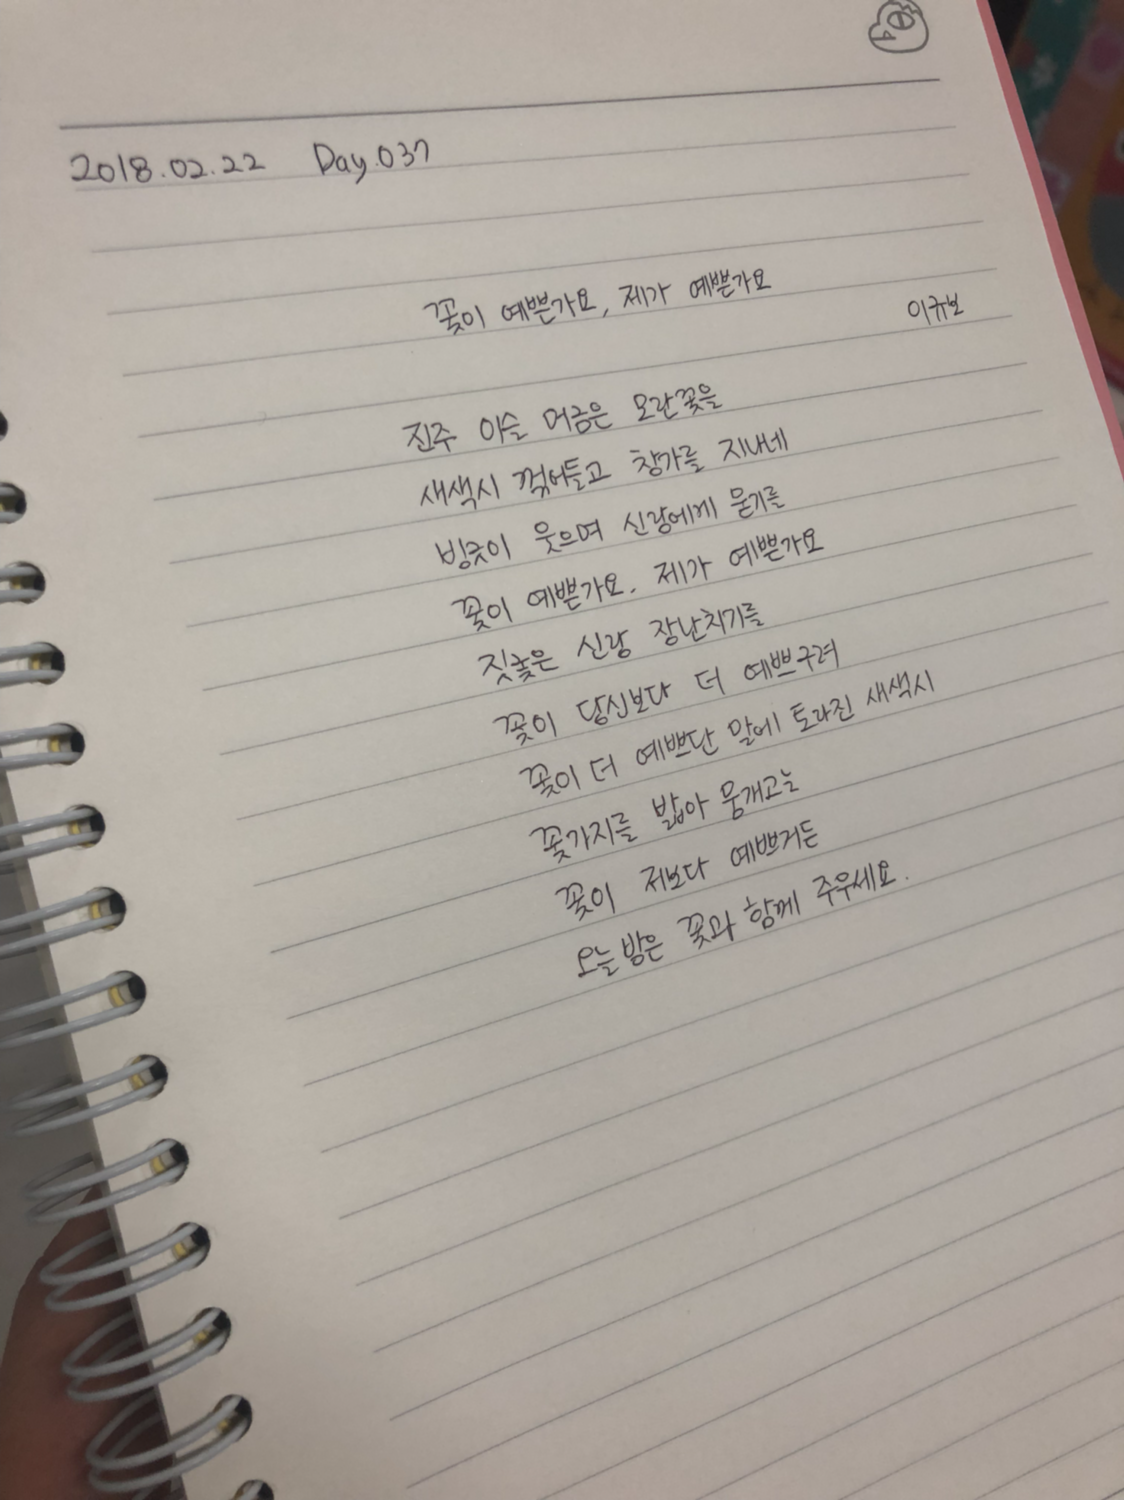 2018.02.22 Day.037
꽃이 예쁜가요, 제가 예쁜가요
이규보
진주 이슬 머금은 모란꽃을
새색시 꺾어들고 창가를 지나네
빙긋이 웃으며 신랑에게 묻기를
꽃이 예쁜가요. 제가 예쁜가요
짓궂은 신랑 장난치기를
꽃이 당신보다 더 예쁘구려
꽃이 더 예쁘단 말에 토라진 새색시
꽃가지를 밟아 뭉개고는
꽃이 저보다 예쁘거든
오늘밤은 꽃과 함께 주무세요.